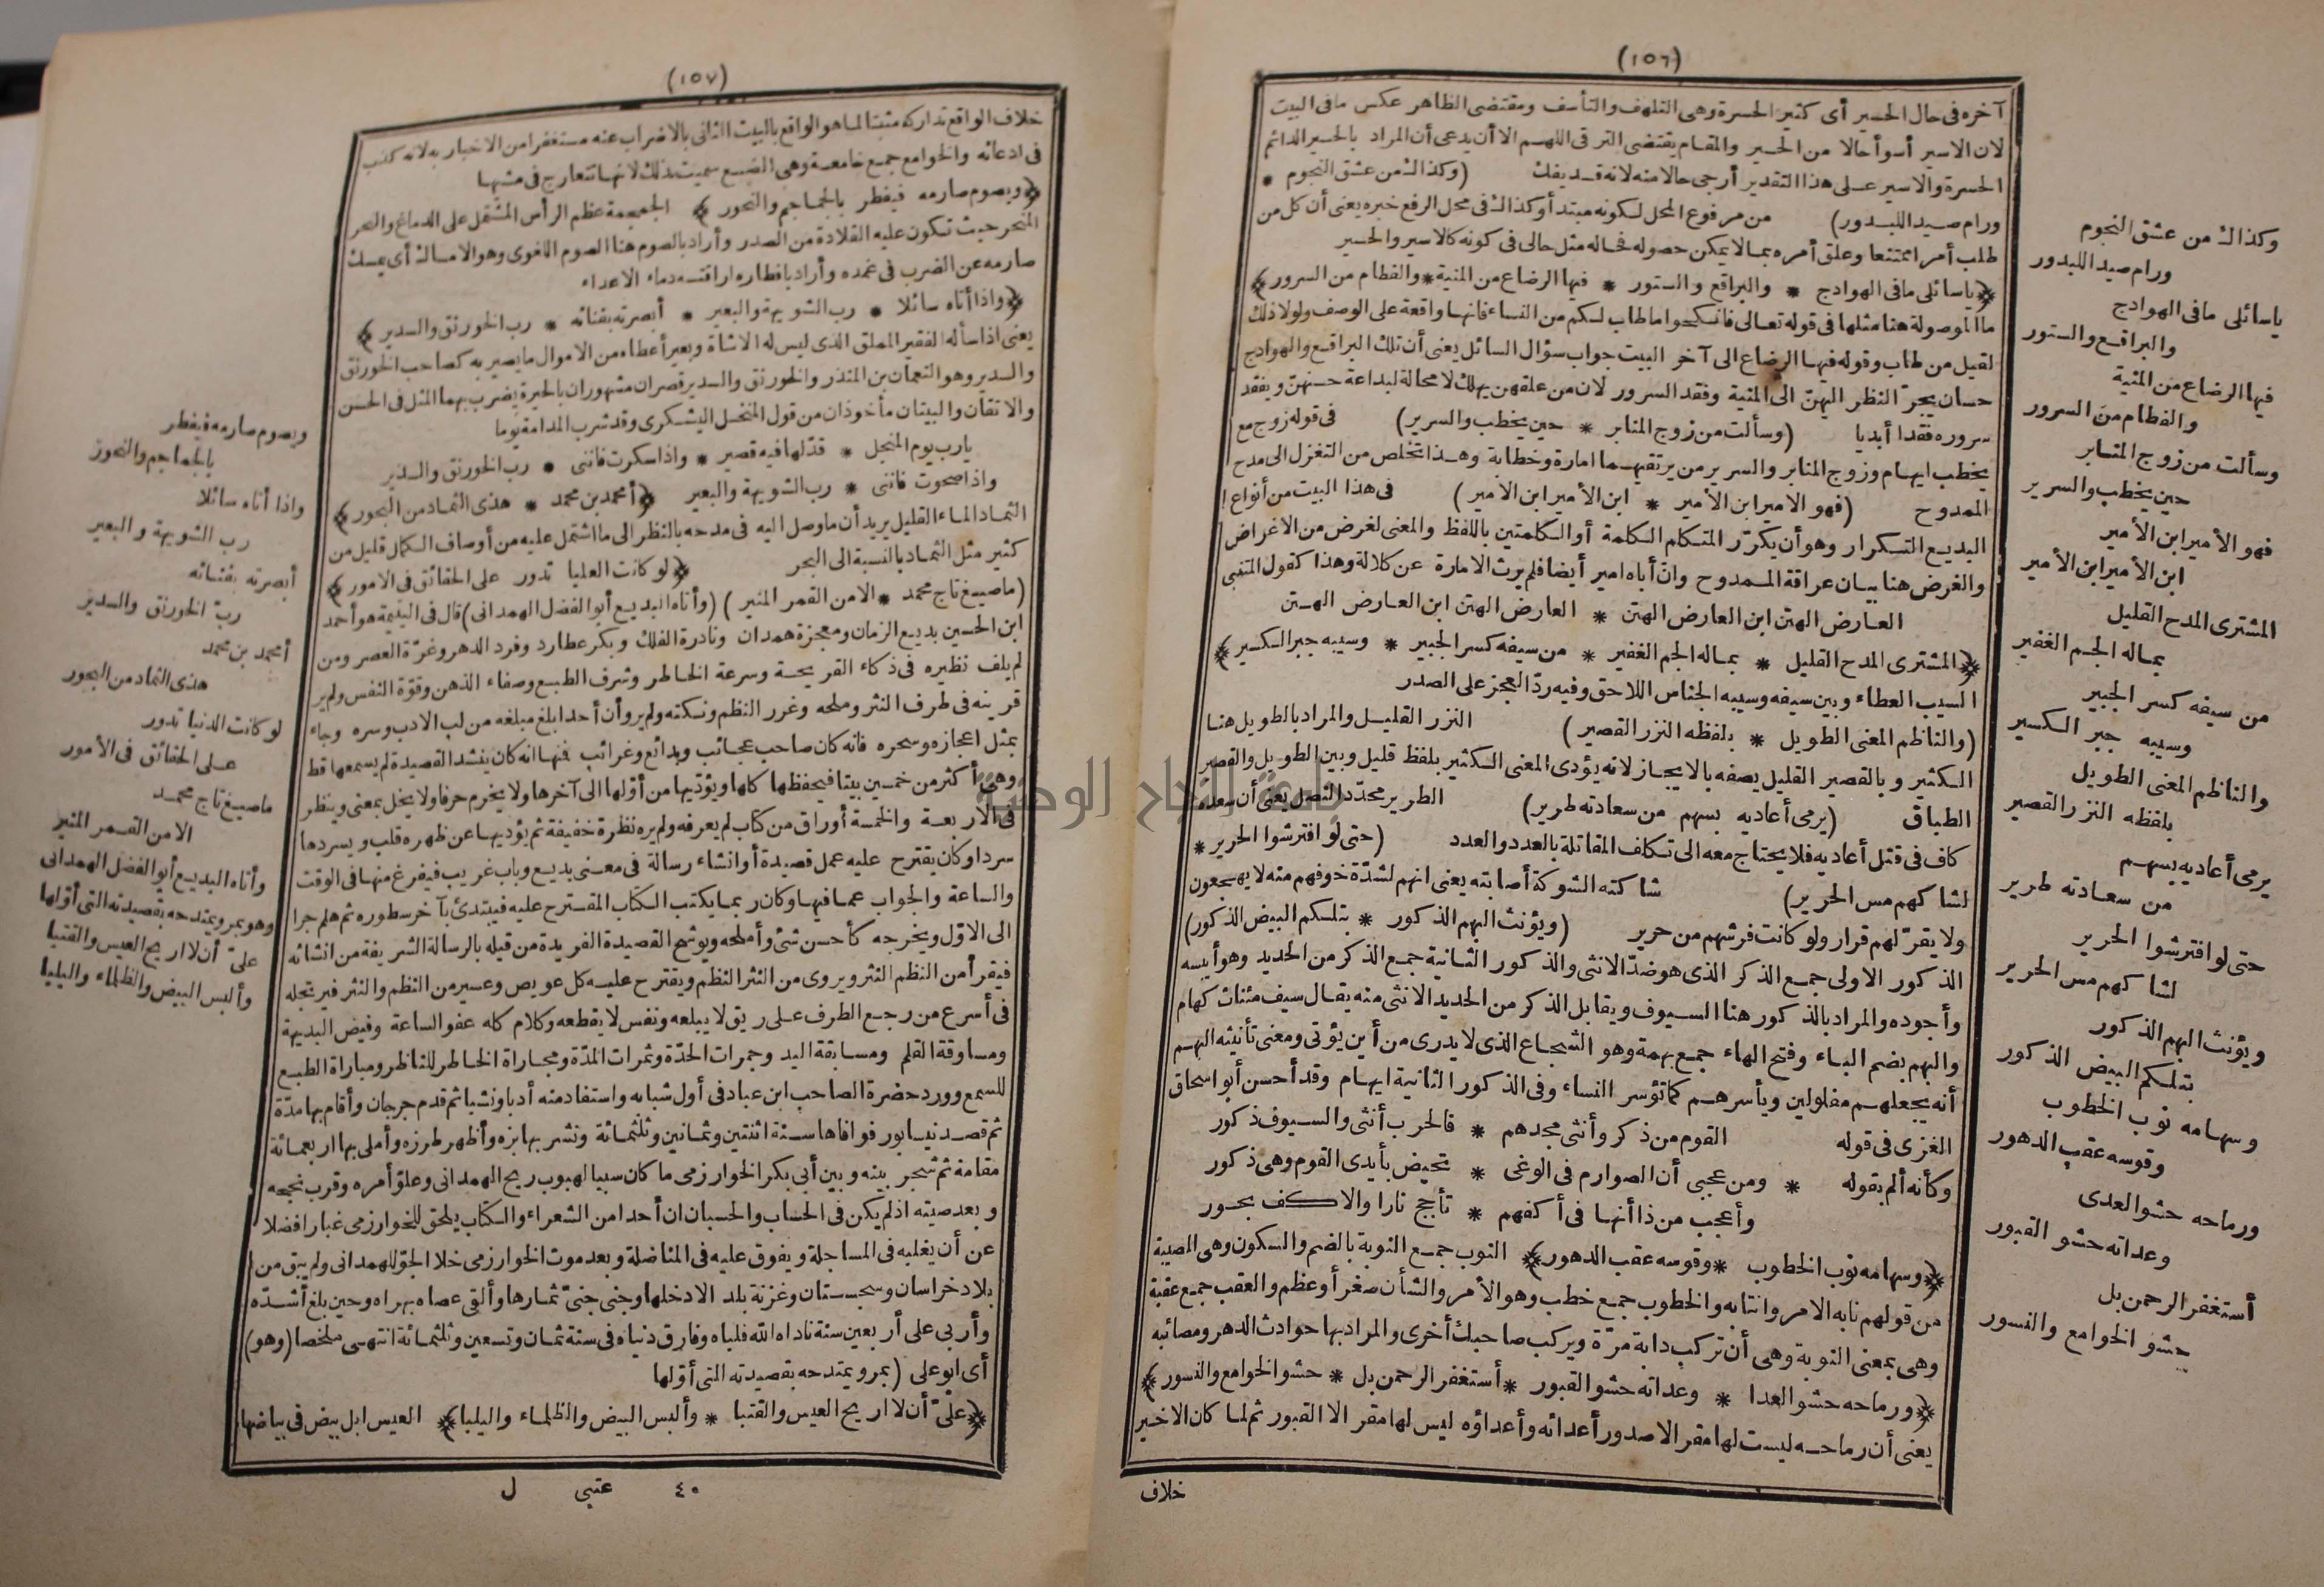 (١٥٦)
آخره فى حال الحسير أى كثير الحسرة وهى التلهف والتأسف ومقتضى الظاهر عكس ما فى البيت
لان الاسير أسوأ حالا من الحسير والمقام يقتضى الترقى اللهم الا أن يدعى أن المراد بالحسير الدائم
الحسرة والاسير على هذا التقدير أرجى حالا منه لانه قد يفك (وكذاك من عشق النجوم *
ورام صيد اللبدور) من مرفوع المحل لكونه مبتدأ وكذاك فى محل الرفع خبره يعنى أن كل من
طلب أمرا ممتنعا وعلق أمره بما لا يمكن حصوله فحاله مثل حالى فى كونه كالاسير والحسير
﴿ياسائلى ما فى الهوادج * والبراقع والستور * فيها الرضاع من المنية * والفطام من السرور﴾
ما الموصولة هنا مثلها فى قوله تعالى فانكحوا ما طاب لكم من النساء فانها واقعة على الوصف ولولا ذلك
لقيل من طاب وقوله فيها الرضاع الى آخر البيت جواب سؤال السائل يعنى أن تلك البراقع والهوادج
حسان يجرّ النظر اليهنّ الى المنية وفقد السرور لان من علقهن يهلك لا محالة لبداعة حسنهنّ ويفقد
سروره فقدا أبديا (وسألت من زوج المنابر * حين يخطب والسرير) فى قوله زوج مع
يخطب ايهام وزوج المنابر والسرير من يرتقيهما امارة وخطابة وهذا تخلص من التغزل الى مدح
الممدوح (فهو الامير ابن الأمير * ابن الأمير ابن الأمير) فى هذا البيت من أنواع
البديع التكرار وهو أن يكرّر المتكلم الكلمة أو الكلمتين باللفظ والمعنى لغرض من الاغراض
والغرض هنا بيان عراقة الممدوح وانّ أباه امير أيضا فلم يرث الامارة عن كلالة وهذا كقول المتنبى
العارض الهتن ابن العارض الهتن * العارض الهتن ابن العارض الهتن
﴿المشترى المدح القليل * بماله الجم الغفير * من سيفه كسر الجبير * وسيبه جبر الكسير﴾
السيب العطاء وبين سيفه وسيبه الجناس اللاحق وفيه ردّ العجز على الصدر
(والناظم المعنى الطويل * بلفظه النزر القصير) النزر القليل والمراد بالطويل هنا
الكثير وبالقصير القليل يصفه بالايجاز لانه يؤدى المعنى الكثير بلفظ قليل وبين الطويل والقصير
الطباق (يرمى أعاديه بسهم من سعادته طرير) الطرير محدّد النصل يعنى أن سعده
كاف فى قتل أعاديه فلا يحتاج معه الى تكلف المقاتلة بالعدد والعدد (حتى لو افترشوا الحرير *
لشاكهم مس الحرير) شاكته الشوكة أصابته يعنى انهم لشدّة خوفهم منه لا يهجعون
ولا يقرّ لهم قرار ولو كانت فرشهم من حرير (ويؤنث البهم الذكور * بتلكم البيض الذكور)
الذكور الاولى جمع الذكر الذى هو ضدّ الانثى والذكور الثانية جمع الذكر من الحديد وهو أيبسه
وأجوده والمراد بالذكور هنا السيوف ويقابل الذكر من الحديد الانثى منه يقال سيف مئناث كهام
والبهم بضم الباء وفتح الهاء جمع بهمة وهو الشجاع الذى لا يدرى من أين يؤتى ومعنى تأنيثه البهم
أنه يجعلهم مفلولين ويأسرهم كما تؤسر النساء وفى الذكور الثانية ايهام وقد أحسن أبو اسحاق
الغزى فى قوله القوم من ذكر وأنثى مجدهم * فالحرب أنثى والسيوف ذكور
وكأنه ألم بقوله * ومن عجبى أن الصوارم فى الوغى * تحيض بأيدى القوم وهى ذكور
وأعجب من ذا أنها فى أكفهم * تأجج نارا والاكف بحور
﴿وسهامه نوب الخطوب * وقوسه عقب الدهور﴾ النوب جمع النوبة بالضم والسكون وهى المصيبة
من قولهم نابه الامر وانتابه والخطوب جمع خطب وهو الأمر والشأن صغر أو عظم والعقب جمع عقبة
وهى بمعنى النوبة وهى أن تركب دابة مرّة ويركب صاحبك أخرى والمراد بها حوادث الدهر ومصائبه
﴿ورماحه حشو العدا * وعداته حشو القبور * أستغفر الرحمن بل * حشو الخوامع والنسور﴾
يعنى أن رماحه ليست لها مقر الا صدور أعدائه وأعداؤه ليس لها مقر الا القبور ثم لما كان الاخير
خلاف
وكذاك من عشق النجوم
ورام صيد اللبدور
ياسائلى ما فى الهوادج
والبراقع والستور
فيها الرضاع من المنية
والفطام من السرور
وسألت من زوج المنابر
حين يخطب والسرير
فهو الأمير ابن الأمير
ابن الأمير ابن الأمير
المشترى المدح القليل
بماله الجم الغفير
من سيفه كسر الجبير
وسيبه جبر الكسير
والناظم المعنى الطويل
بلفظه النزر القصير
يرمى أعاديه بسهم
من سعادته طرير
حتى لو افترشوا الحرير
لشاكهم مس الحرير
ويؤنث البهم الذكور
بتلكم البيض الذكور
وسهامه نوب الخطوب
وقوسه عقب الدهور
ورماحه حشو العدى
وعداته حشو القبور
أستغفر الرحمن بل
حشو الخوامع والنسور
(١٥٧)
خلاف الواقع تداركه مثبتا لما هو الواقع بالبيت الثانى بالاضراب عنه مستغفرا من الاخبار به لانه كذب
فى ادعائه والخوامع جمع خامعة وهى الضبع سميت بذلك لانها تتعارج فى مشيها
﴿ويصوم صارمه فيفطر بالجماجم والنحور﴾ الجمجمة عظم الرأس المشتمل على الدماغ والنحر
المنحر حيث تكون عليه القلادة من الصدر وأراد بالصوم هنا الصوم اللغوى وهو الامساك أى يمسك
صارمه عن الضرب فى غمده وأراد بافطاره اراقته دماء الاعداء
﴿واذا أتاه سائلا * رب الشويهة والبعير * أبصرته بفنائه * رب الخورنق والسدير﴾
يعنى اذا سأله الفقير المملق الذى ليس له الا شاة وبعير أعطاه من الاموال ما يصير به كصاحب الخورنق
والسدير وهو النعمان بن المنذر والخورنق والسدير قصران مشهوران بالحيرة يضرب بهما المثل فى الحسن
والاتقان والبيتان مأخوذان من قول المنخل اليشكرى وقد شرب المدامة يوما
يارب يوم المنجل * قد لها فيه قصير * واذا سكرت فاننى * رب الخورنق والسدير
واذا صحوت فاننى * رب الشويهة والبعير ﴿أمحمد بن محمد * هذى الثماد من البحور﴾
الثماد الماء القليل يريد أن ما وصل اليه فى مدحه بالنظر الى ما اشتمل عليه من أوصاف الكمال قليل من
كثير مثل الثماد بالنسبة الى البحر ﴿لو كانت العليا تدور على الحقائق فى الامور﴾
(ما صيغ تاج محمد * الا من القمر المنير) (وأتاه البديع أبو الفضل الهمدانى) قال فى اليتيمة هو أحمد
ابن الحسين بديع الزمان ومعجزة همدان ونادرة الفلك وبكر عطارد وفرد الدهر وغرّة العصر ومن
لم يلف نظيره فى ذكاء القريحة وسرعة الخاطر وشرف الطبع وصفاء الذهن وقوّة النفس ولم ير
قرينه فى طرف النثر وملحه وغرر النظم ونكته ولم يرو أن أحدا بلغ مبلغه من لب الادب وسره وجاء
بمثل اعجازه وسحره فانه كان صاحب عجائب وبدائع وغرائب فمنها انه كان ينشد القصيدة لم يسمعها قط
وهى أكثر من خمسين بيتا فيحفظها كلها ويؤدّيها من أوّلها الى آخرها ولا يخرم حرفا ولا يخل بمعنى وينظر
فى الاربعة والخمسة أوراق من كتاب لم يعرفه ولم يره نظرة خفيفة ثم يؤديها عن ظهر قلب ويسردها
سردا وكان يقترح عليه عمل قصيدة أو انشاء رسالة فى معنى بديع وباب غريب فيفرغ منها فى الوقت
والساعة والجواب عما فيها وكان ربما يكتب الكتاب المقترح عليه فيبتدئ بآخر سطوره ثم هلم جرا
الى الاوّل ويخرجه كأحسن شئ وأملحه ويوشح القصيدة الفريدة من قيله بالرسالة الشريفة من انشائه
فيقرأ من النظم النثر ويروى من النثر النظم ويقترح عليه كل عويص وعسير من النظم والنثر فيرتجله
فى أسرع من رجع الطرف على ريق لا يبلعه ونفس لا يقطعه وكلام كله عفو الساعة وفيض البديهة
ومساوقة القلم ومسابقة اليد وجمرات الحدّة وثمرات المدّة ومجاراة الخاطر للناظر ومباراة الطبع
للسمع وورد حضرة الصاحب ابن عباد فى أول شبابه واستفاد منه أدبا ونشبا ثم قدم جرجان وأقام بها مدّة
ثم قصد نيسابور فوافاها سنة اثنتين وثمانين وثلثمائة ونشر بها بزه وأظهر طرزه وأملى بها اربعمائة
مقامة ثم شجر بينه وبين أبى بكر الخوارزمى ما كان سببا لهبوب ريح الهمدانى وعلوّ أمره وقرب نجحه
وبعد صيته اذ لم يكن فى الحساب والحسبان ان أحدا من الشعراء والكتاب يلحق للخوارزمى غبارا فضلا
عن أن يغلبه فى المساجلة ويفوق عليه فى المناضلة وبعد موت الخوارزمى خلا الجوّ للهمدانى ولم يبق من
بلاد خراسان وسجستان وغزنة بلد الا دخلها وجنى جنىّ ثمارها وألقى عصاه بهراه وحين بلغ أشدّه
وأربى على أربعين سنة ناداه الله فلباه وفارق دنياه فى سنة ثمان وتسعين وثلثمائة انتهى ملخصا (وهو)
أى ابو على (بمرو يمتدحه بقصيدته التى أوّلها
﴿علىّ أن لا اريح العيس والقتبا * وألبس البيض والظلماء واليلبا﴾ العيس ابل بيض فى بياضها
٤٠ عتبى ل
ويصوم صارمه فيفطر
بالجماجم والنحور
واذا أتاه سائلا
رب الشويهة والبعير
أبصرته بفنائه
ربّ الخورنق والسدير
أمحمد بن محمد
هذى الثماد من البحور
لو كانت الدنيا تدور
على الحقائق فى الأمور
ما صيغ تاج محمد
الا من القمر المنير
وأتاه البديع أبو الفضل الهمدانى
وهو بمرو يمتدحه بقصيدته التى أوّلها
علىّ أن لا اريح العيس والقتبا
وألبس البيض والظلماء واليلبا
جامعة النجاح الوطنية